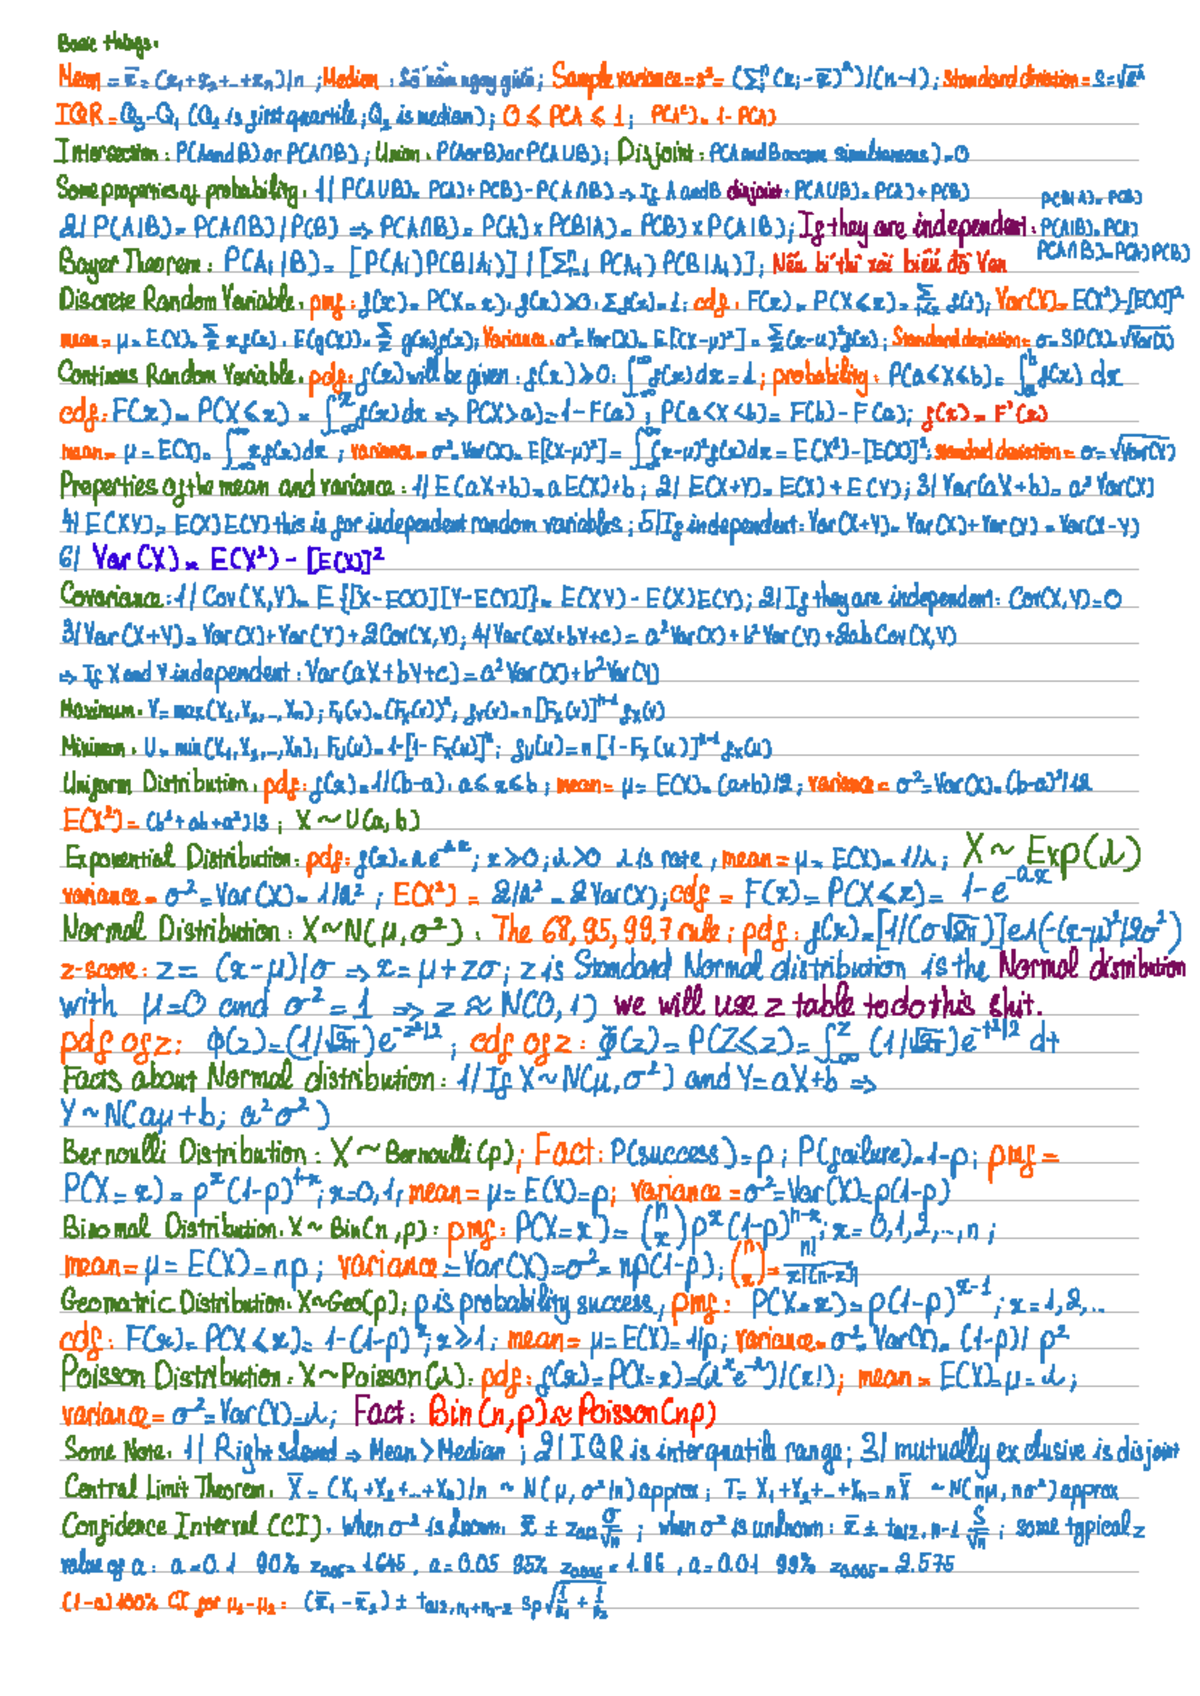 Basic things:
Mean = x̄ = (x₁+x₂+...+xₙ)/n ; Median : Số nằm ngay giữa ; Sample variance = s² = (Σᵢⁿ (xᵢ - x̄)²)/(n-1) ; Standard diviation = s = √s²
IQR = Q₃-Q₁ (Q₁ is first quartile ; Q₂ is median) ; 0 ≤ P(A) ≤ 1 ; P(Aᶜ) = 1 - P(A)
Intersection : P(A and B) or P(A∩B) ; Union : P(A or B) or P(A∪B) ; Disjoint : P(A and B occure simultaneous) = 0
Some properties of probability : 1/ P(A∪B) = P(A) + P(B) - P(A∩B) ⇒ If A and B disjoint : P(A∪B) = P(A) + P(B)
P(B|A) = P(B)
2/ P(A|B) = P(A∩B) / P(B) ⇒ P(A∩B) = P(A) × P(B|A) = P(B) × P(A|B) ; If they are independent : P(A|B) = P(A)
P(A∩B) = P(A) P(B)
Bayer Theorem : P(Aᵢ|B) = [P(Aᵢ) P(B|Aᵢ)] / [Σⁿᵢ₌₁ P(Aᵢ) P(B|Aᵢ)] ; Nếu bí thì xài biểu đồ Ven
Discrete Random Variable : pmf : f(x) = P(X=x) , f(x) ≥ 0 , Σf(x) = 1 ; cdf : F(x) = P(X≤x) = Σ f(t) ; Var(X) = E(X²) - [E(X)]²
mean = μ = E(X) = Σₓ x f(x) , E(g(X)) = Σₓ g(x)f(x) ; Variance : σ² = Var(X) = E[(X-μ)²] = Σₓ (x-μ)² f(x) ; Standard deviation : σ = SD(X) = √Var(X)
Continous Random Variable : pdf : f(x) will be given : f(x) ≥ 0 : ∫₋∞^∞ f(x) dx = 1 ; probability : P(a<X<b) = ∫ₐᵇ f(x) dx
cdf : F(x) = P(X≤x) = ∫₋∞ˣ f(x) dx ⇒ P(X>a) = 1-F(a) ; P(a<X<b) = F(b) - F(a) ; f(x) = F'(x)
mean = μ = E(X) = ∫₋∞^∞ x f(x) dx ; variance = σ² = Var(X) = E[(X-μ)²] = ∫₋∞^∞ (x-μ)² f(x) dx = E(X²) - [E(X)]² ; standard deviation = σ = √Var(X)
Properties of the mean and variance : 1/ E(aX+b) = aE(X)+b ; 2/ E(X+Y) = E(X) + E(Y) ; 3/ Var(aX+b) = a² Var(X)
4/ E(XY) = E(X)E(Y) this is for independent random variables ; 5/ If independent : Var(X+Y) = Var(X)+Var(Y) = Var(X-Y)
6/ Var(X) = E(X²) - [E(X)]²
Covariance : 1/ Cov(X,Y) = E{[X-E(X)][Y-E(Y)]} = E(XY) - E(X)E(Y) ; 2/ If they are independent : Cov(X,Y) = 0
3/ Var(X+Y) = Var(X) + Var(Y) + 2Cov(X,Y) ; 4/ Var(aX+bY+c) = a² Var(X) + b² Var(Y) + 2ab Cov(X,Y)
⇒ If X and Y independent : Var(aX+bY+c) = a² Var(X) + b² Var(Y)
Maximum : V = max(X₁,X₂,...,Xₙ) ; Fᵥ(v) = (Fₓ(v))ⁿ ; fᵥ(v) = n [Fₓ(v)]ⁿ⁻¹ fₓ(v)
Minimum : U = min(X₁,X₂,...,Xₙ) ; F_U(u) = 1-[1-Fₓ(u)]ⁿ ; f_U(u) = n [1-Fₓ(u)]ⁿ⁻¹ fₓ(u)
Uniform Distribution : pdf : f(x) = 1/(b-a) , a≤x≤b ; mean = μ = E(X) = (a+b)/2 ; variance = σ² = Var(X) = (b-a)²/12
E(X²) = (b²+ab+a²)/3 ; X ~ U(a,b)
Exponential Distribution : pdf : f(x) = λe^-λx ; x≥0 ; λ>0 λ is rate , mean = μ = E(X) = 1/λ ; X ~ Exp(λ)
variance = σ² = Var(X) = 1/λ² ; E(X²) = 2/λ² = 2 Var(X) ; cdf = F(x) = P(X≤x) = 1-e^-λx
Normal Distribution : X~N(μ,σ²) . The 68, 95, 99.7 rule ; pdf : f(x) = [1/(σ√2π)] e^(-(x-μ)²/2σ²)
z-score : z = (x-μ)/σ ⇒ x = μ + zσ ; z is Standard Normal distribution is the Normal distribution
with μ=0 and σ²=1 ⇒ z ≈ N(0,1) we will use z table to do this shit.
pdf of z : ϕ(z) = (1/√2π) e^-z²/2 ; cdf of z : Φ(z) = P(Z≤z) = ∫₋∞ᶻ (1/√2π) e^-t²/2 dt
Facts about Normal distribution : 1/ If X~N(μ,σ²) and Y=aX+b ⇒
Y~N(aμ+b; a²σ²)
Bernoulli Distribution : X ~ Bernoulli(p) ; Fact : P(success) = p ; P(failure) = 1-p ; pmf =
P(X=x) = pˣ(1-p)¹⁻ˣ ; x=0,1 , mean = μ = E(X) = p ; variance = σ² = Var(X) = p(1-p)
Binomal Distribution : X ~ Bin(n,p) : pmf : P(X=x) = (n x) pˣ(1-p)ⁿ⁻ˣ ; x = 0,1,2,...,n ;
mean = μ = E(X) = np ; variance = Var(X) = σ² = np(1-p) ; (n x) = n!/x!(n-x)!
Geomatric Distribution : X~Geo(p) ; p is probability success , pmf : P(X=x) = p(1-p)ˣ⁻¹ ; x = 1,2,...
cdf : F(x) = P(X≤x) = 1-(1-p)ˣ ; x≥1 ; mean = μ = E(X) = 1/p ; variance = σ² = Var(X) = (1-p)/p²
Poisson Distribution : X~Poisson(λ) : pdf : f(x) = P(X=x) = (λˣe^-λ)/(x!) ; mean = E(X) = μ = λ ;
variance = σ² = Var(X) = λ ; Fact : Bin(n,p) ≈ Poisson(np)
Some Note : 1/ Right skewed ⇒ Mean > Median ; 2/ IQR is interquatile range ; 3/ mutually exclusive is disjoint
Central Limit Theorem : X̄ = (X₁+X₂+...+Xₙ)/n ~ N(μ, σ²/n) approx ; T = X₁+X₂+...+Xₙ = nX̄ ~ N(nμ, nσ²) approx
Confidence Interval (CI) : When σ² is known : x̄ ± z_α/2 σ/√n ; when σ² is unknown : x̄ ± t_α/2, n-1 S/√n ; some typical z
value of α : α = 0.1 90% z₀.₀₅ = 1.645 , α = 0.05 95% z₀.₀₂₅ = 1.96 , α = 0.01 99% z₀.₀₀₅ = 2.575
(1-α)100% CI for μ₁-μ₂ : (x̄₁ - x̄₂) ± t_α/2, n₁+n₂-2 Sp√(1/n₁ + 1/n₂)